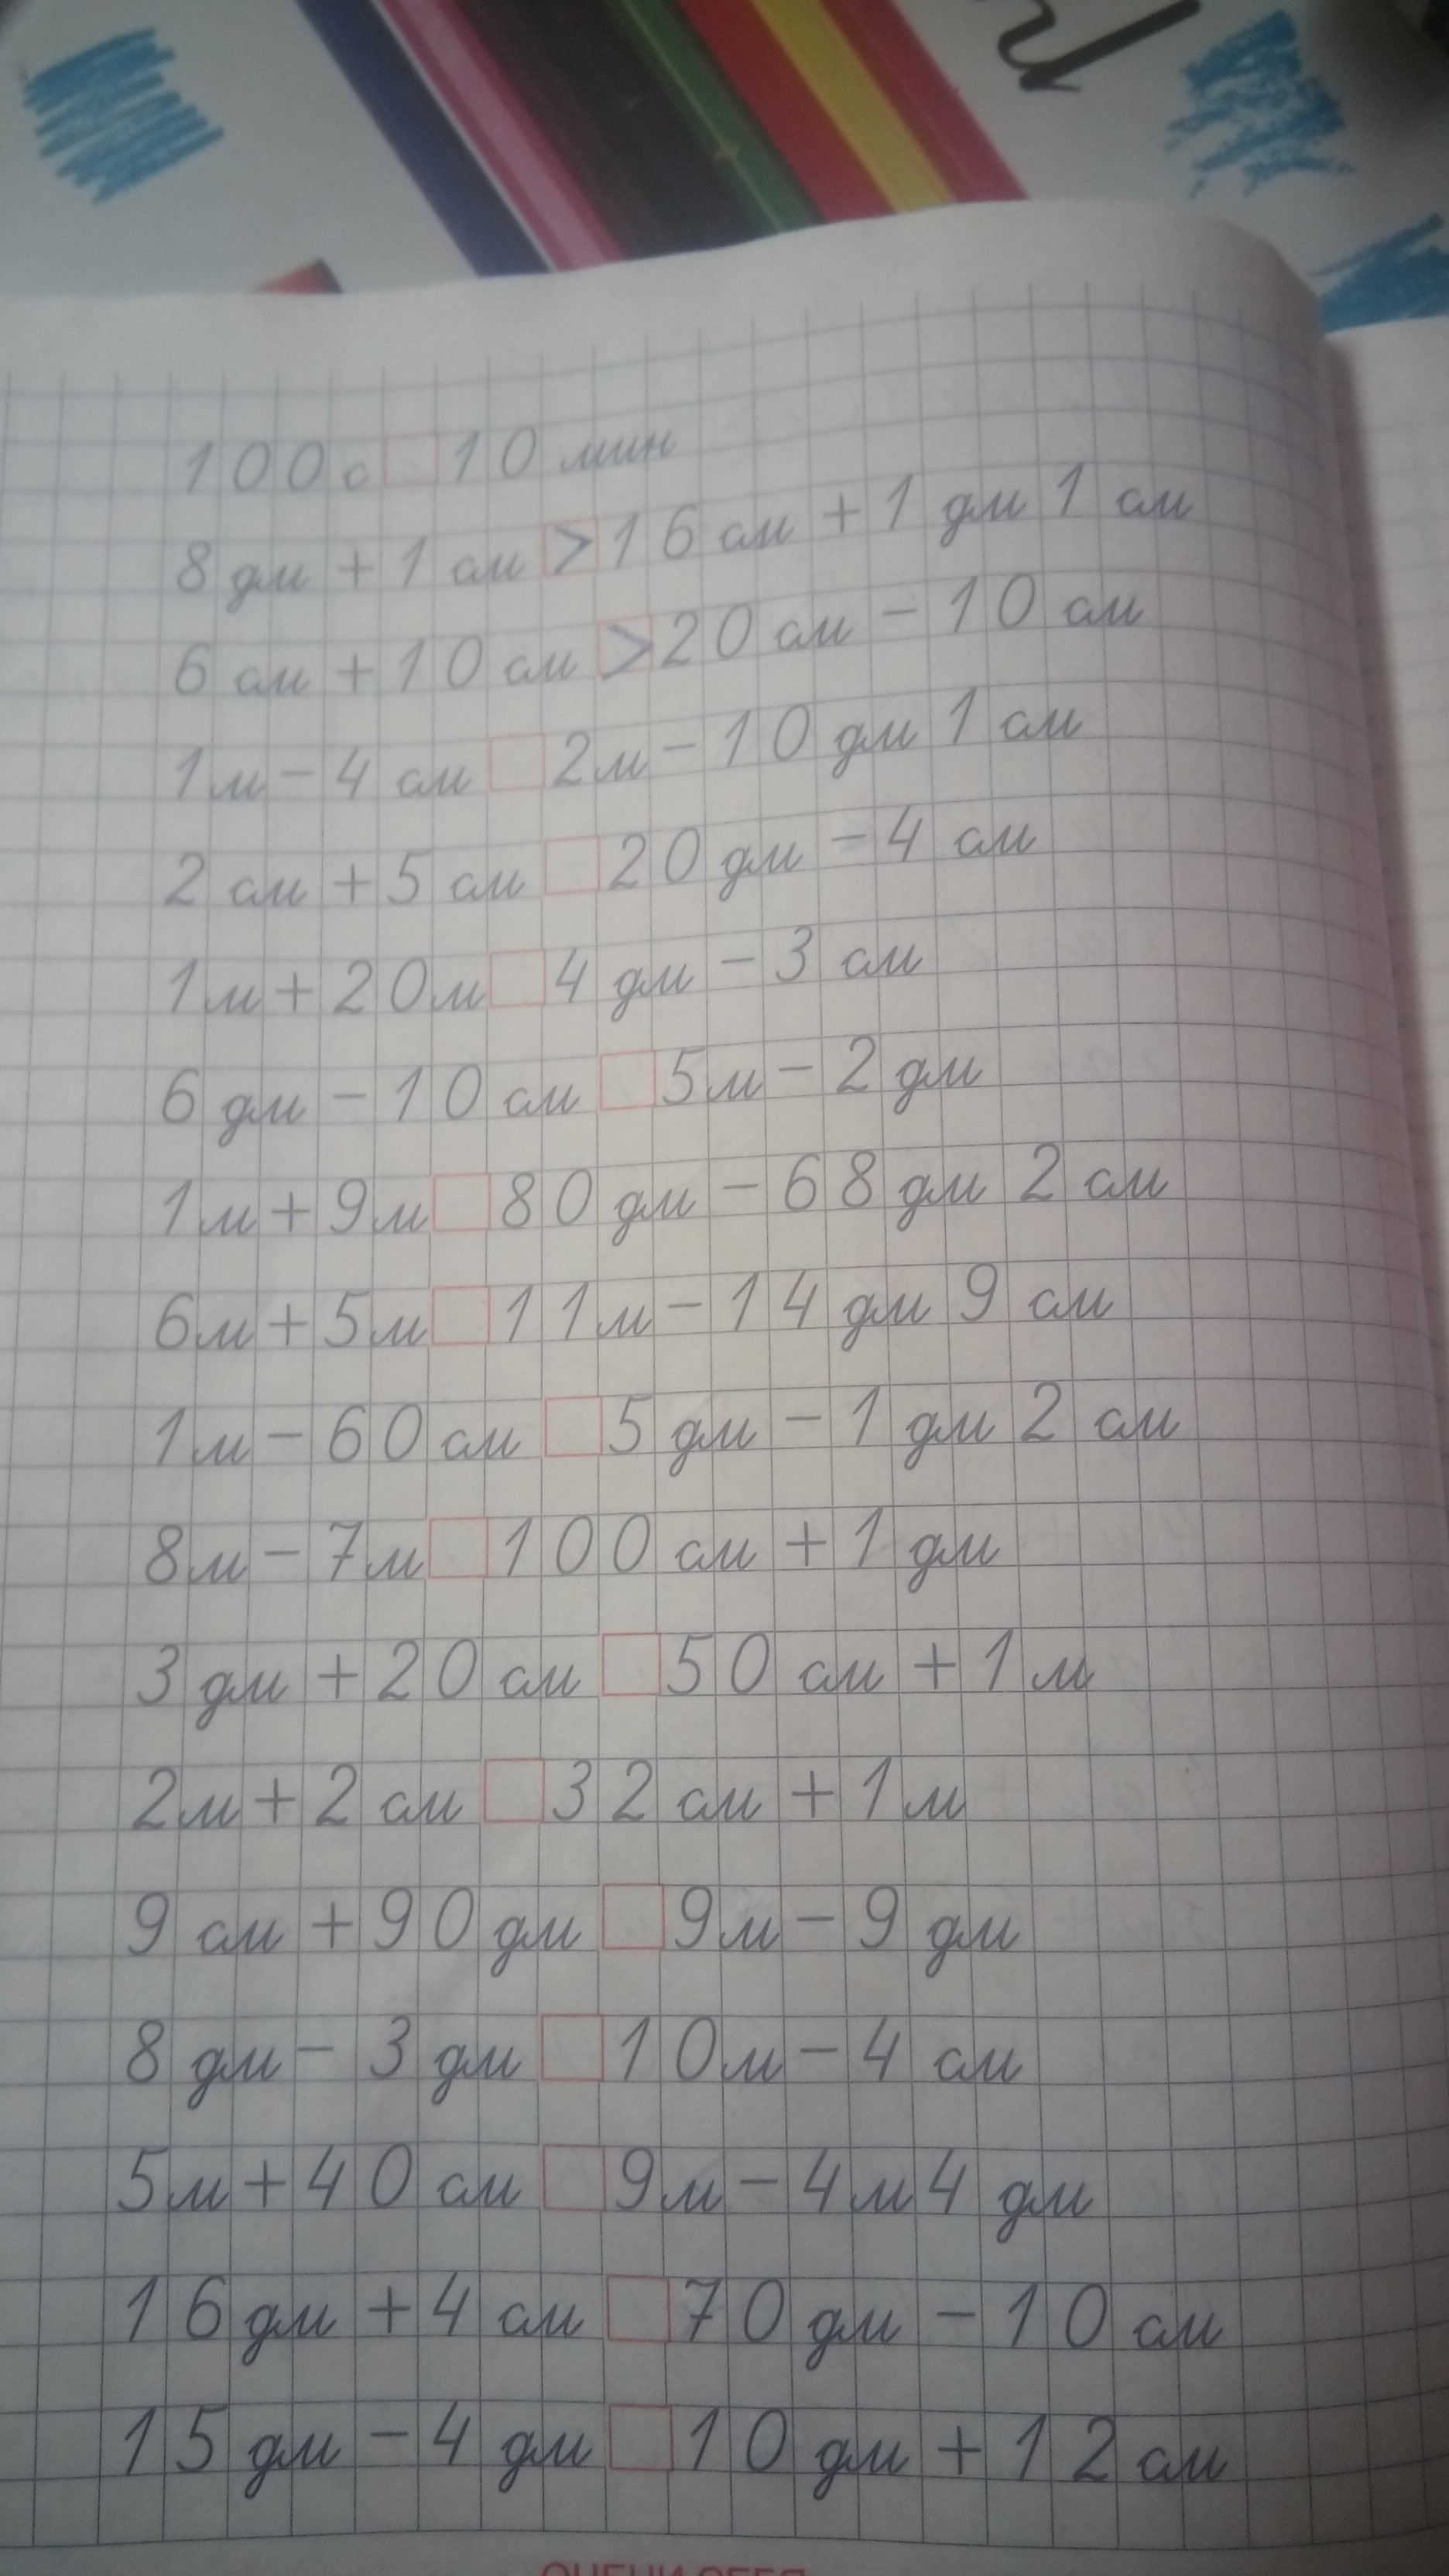 100с □ 10 мин
8 дм + 1 см > 16 см + 1 дм 1 см
6 см + 10 см > 20 см - 10 см
1м - 4 см □ 2м - 10 дм 1 см
2 см + 5 см □ 20 дм - 4 см
1м + 20м □ 4 дм - 3 см
6 дм - 10 см □ 5м - 2 дм
1м + 9м □ 80 дм - 68 дм 2 см
6м + 5м □ 11м - 14 дм 9 см
1м - 60 см □ 5 дм - 1 дм 2 см
8м - 7м □ 100 см + 1 дм
3 дм + 20 см □ 50 см + 1 м
2м + 2 см □ 32 см + 1м
9 см + 90 дм □ 9м - 9 дм
8 дм - 3 дм □ 10м - 4 см
5м + 40 см □ 9м - 4м 4 дм
16 дм + 4 см □ 70 дм - 10 см
15 дм - 4 дм □ 10 дм + 12 см